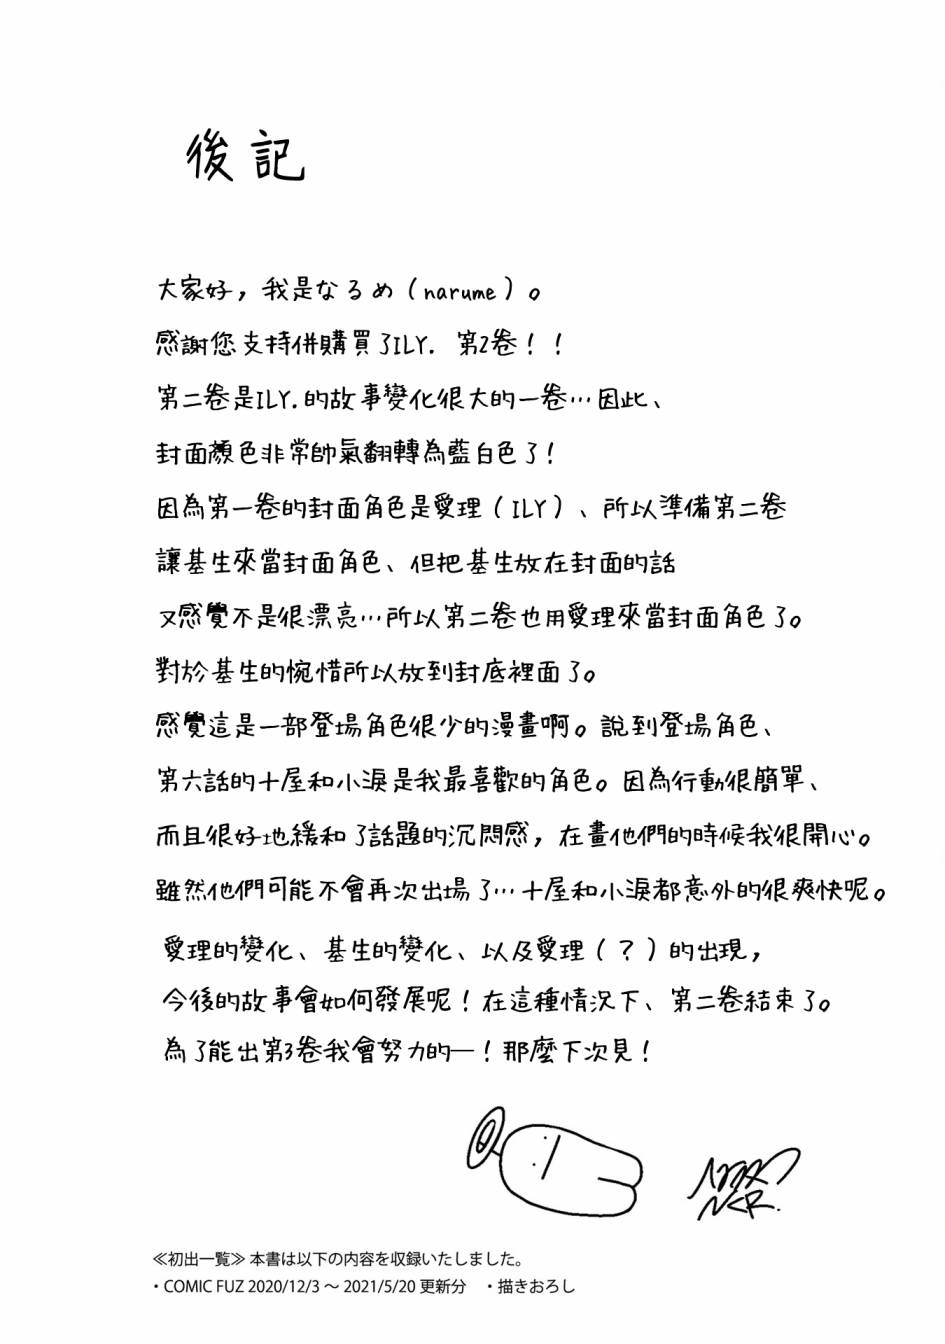 後記
大家好，我是なるめ（narume）。
感謝您支持併購買了ILY.　第2卷！！
第二卷是ILY.的故事變化很大的一卷…因此、
封面顏色非常帥氣翻轉為藍白色了！
因為第一卷的封面角色是愛理（ILY）、所以準備第二卷
讓基生來當封面角色、但把基生放在封面的話
又感覺不是很漂亮…所以第二卷也用愛理來當封面角色了。
對於基生的惋惜所以放到封底裡面了。
感覺這是一部登場角色很少的漫畫啊。說到登場角色、
第六話的十屋和小淚是我最喜歡的角色。因為行動很簡單、
而且很好地緩和了話題的沉悶感，在畫他們的時候我很開心。
雖然他們可能不會再次出場了…十屋和小淚都意外的很爽快呢。
愛理的變化、基生的變化、以及愛理（？）的出現，
今後的故事會如何發展呢！在這種情況下、第二卷結束了。
為了能出第3卷我會努力的—！那麼下次見！
≪初出一覧≫ 本書は以下の内容を収録いたしました。
・COMIC FUZ 2020/12/3 ～ 2021/5/20 更新分　・描きおろし